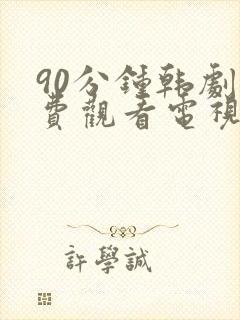 90分鍾韩劇
費觀看電視
許學誠